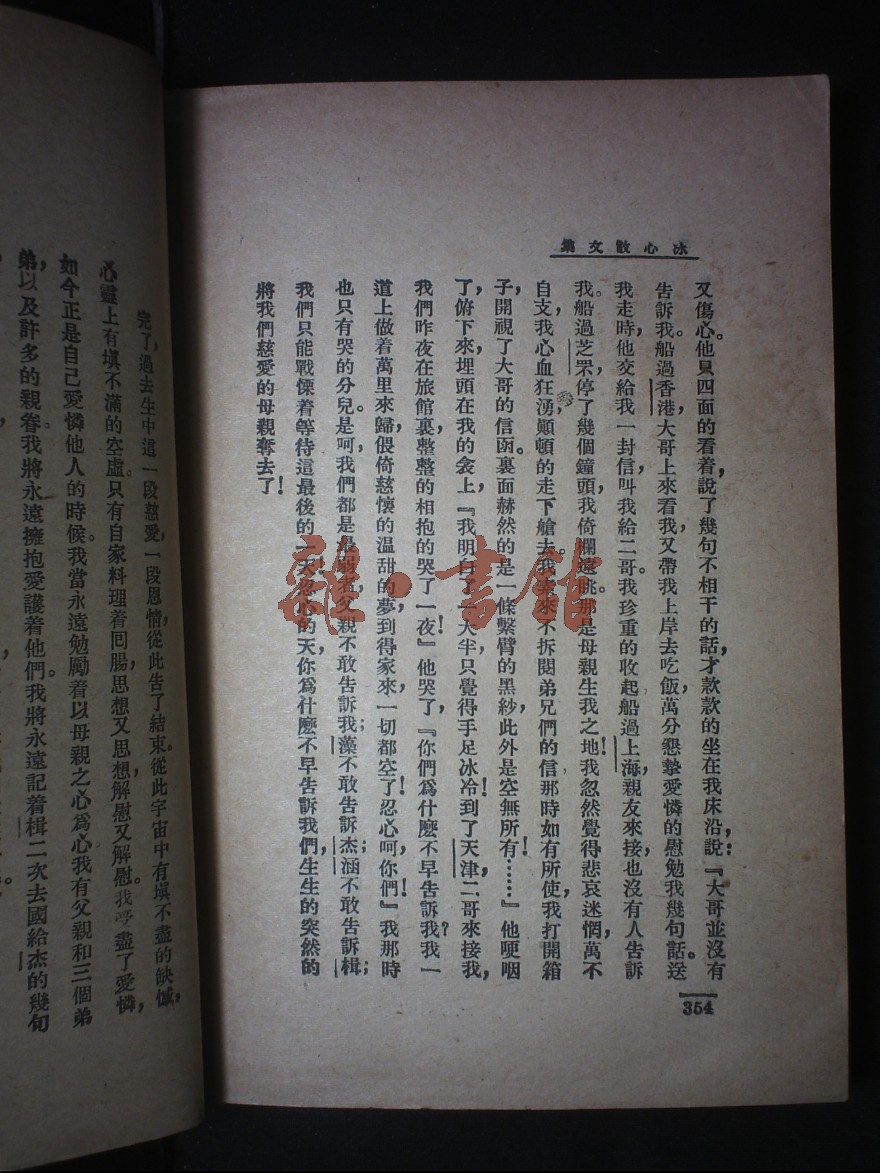 冰心散文集
又傷心。他只四面的看着，說了幾句不相干的話，才款款的坐在我床沿，說：『大哥並沒有
告訴我。船過香港，大哥上來看我，又帶我上岸去吃飯，萬分懇摯愛憐的慰勉我幾句話。送
我走時，他交給我一封信，叫我給二哥。我珍重的收起。船過上海，親友來接，也沒有人告訴
我。船過芝罘，停了幾個鐘頭，我倚欄遠眺。那是母親生我之地！我忽然覺得悲哀迷惘，萬不
自支，我心血狂湧，顚頓的走下艙去。我素來不拆閱弟兄們的信，那時如有所使，我打開箱
子，開視了大哥的信函。裏面赫然的是一條繫臂的黑紗，此外是空無所有！……』他哽咽
了，俯下來，埋頭在我的衾上，『我明白了一大半，只覺得手足冰冷！到了天津，二哥來接我，
我們昨夜在旅館裏，整整的相抱的哭了一夜！』他哭了，『你們爲什麽不早告訴我？我一
道上做着萬里來歸，偎倚慈懷的溫甜的夢，到得家來，一切都空了！忍心呵，你們！』我那時
也只有哭的分兒。是呵，我們都是最弱者，父親不敢告訴我；藻不敢告訴杰；涵不敢告訴楫；
我們只能戰慄着等待這最後的一天！忍心的天，你爲什麽不早告訴我們，生生的突然的
將我們慈愛的母親奪去了！
354
完了，過去生中這一段慈愛，一段恩情，從此告了結束。從此宇宙中有塡不盡的缺憾，
心靈上有塡不滿的空虛。只有自家料理着囘腸，思想又思想，解慰又解慰。我受盡了愛憐，
如今正是自己愛憐他人的時候。我當永遠勉勵着以母親之心爲心。我有父親和三個弟
弟，以及許多的親眷。我將永遠擁抱愛護着他們。我將永遠記着楫二次去國給杰的幾句
雜·書館